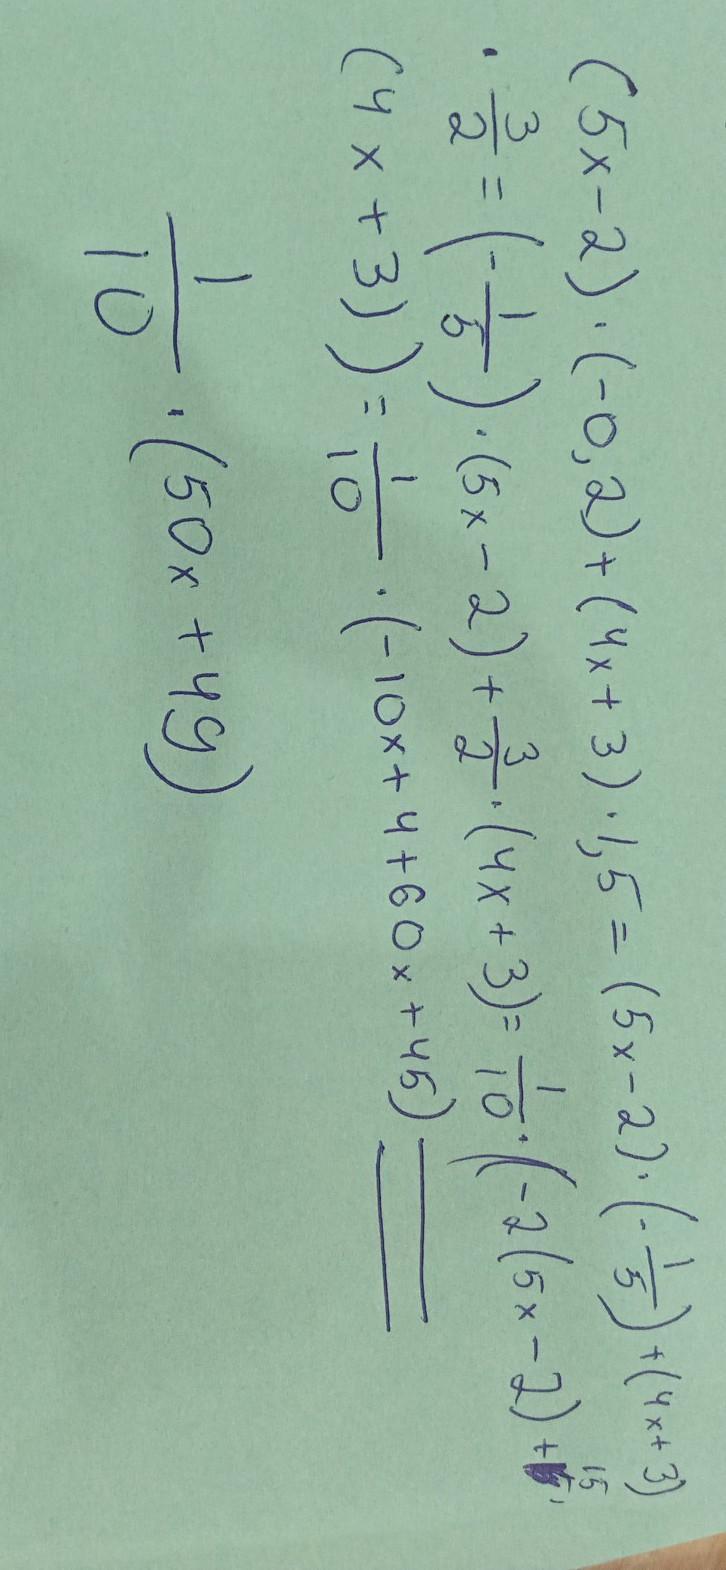 (5x-2)·(-0,2)+(4x+3)·1,5=(5x-2)·(-1/5)+(4x+3)
·3/2=(-1/5)·(5x-2)+3/2·(4x+3)=1/10·(-2(5x-2)+15·
(4x+3))=1/10·(-10x+4+60x+45)=
1/10·(50x+49)